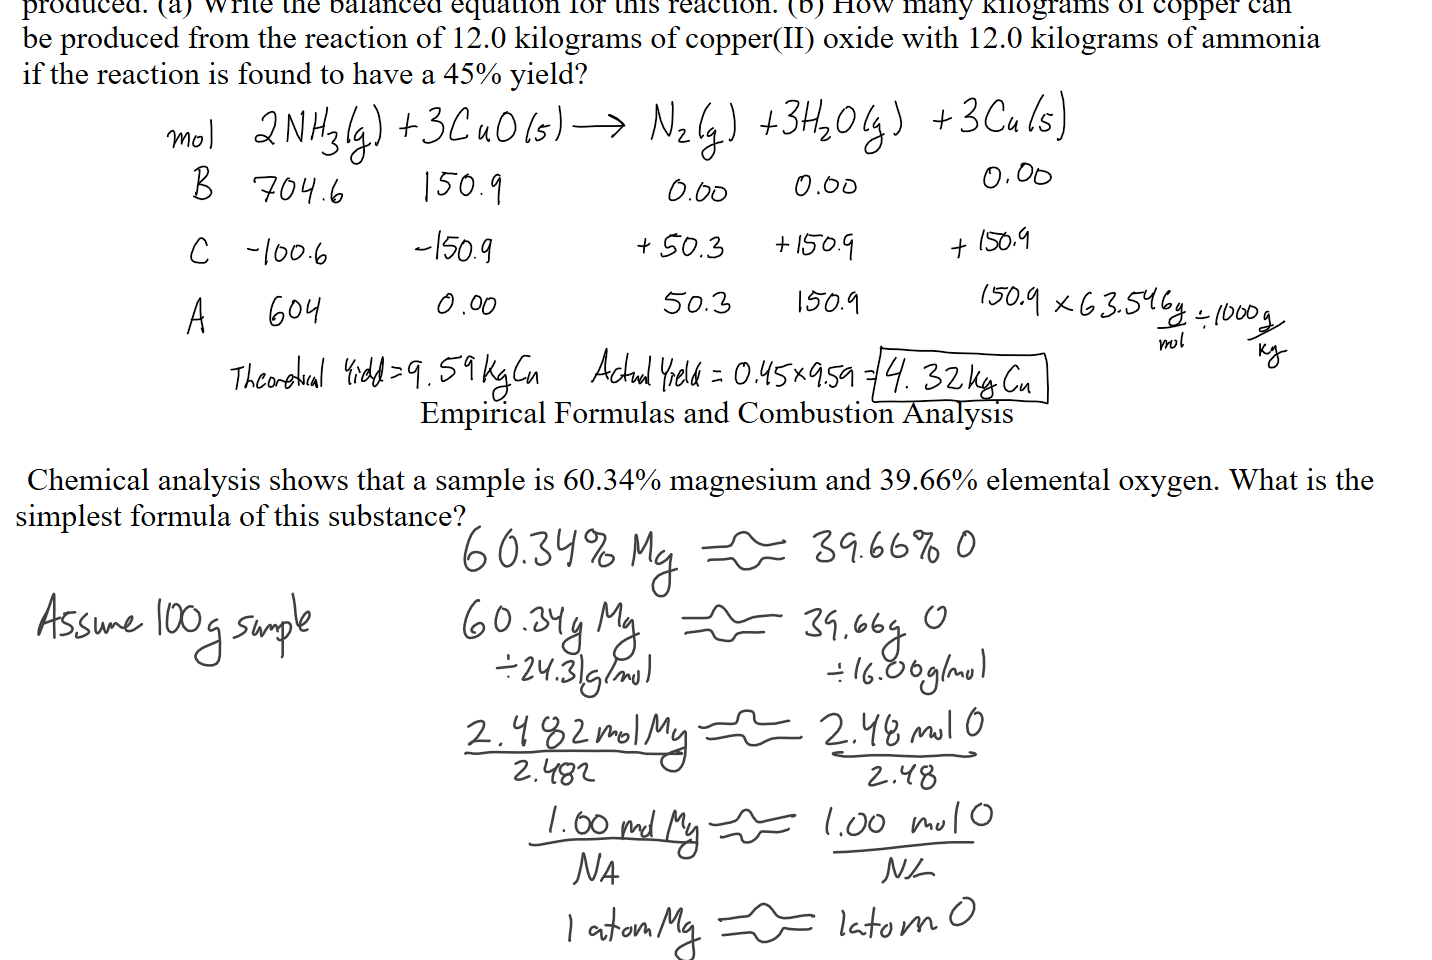 produced. (a) Write the balanced equation for this reaction. (b) How many kilograms of copper can
be produced from the reaction of 12.0 kilograms of copper(II) oxide with 12.0 kilograms of ammonia
if the reaction is found to have a 45% yield?
mol 2NH₃(g) +3CuO(s) → N₂(g) +3H₂O(g) +3Cu(s)
B 704.6 150.9 0.00 0.00 0.00
C -100.6 -150.9 +50.3 +150.9 +150.9
A 604 0.00 50.3 150.9 150.9 × 63.546g/mol ÷ 1000g/kg
Theoretical Yield = 9.59 kg Cu Actual Yield = 0.45×9.59 = 4.32 kg Cu
Empirical Formulas and Combustion Analysis
Chemical analysis shows that a sample is 60.34% magnesium and 39.66% elemental oxygen. What is the
simplest formula of this substance?
60.34% Mg 39.66% O
Assume 100g sample 60.34g Mg 39.66g O
÷24.31g/mol ÷16.00g/mol
2.482 mol Mg 2.48 mol O
2.482 2.48
1.00 mol Mg 1.00 mol O
NA NA
1 atom Mg 1 atom O